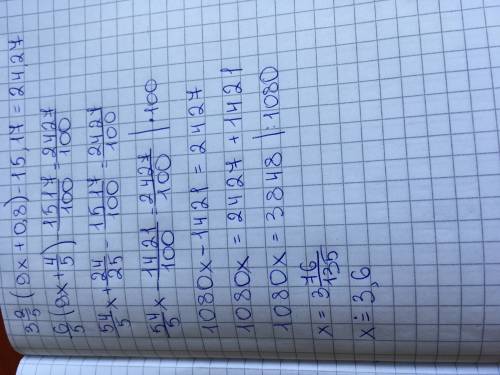 3 2/5 (9x + 0,8) - 15,17 = 24,27
6/5 (9x + 4/5) - 1517/100 = 2427/100
54/5 x + 24/25 - 1517/100 = 2427/100
54/5 x - 1421/100 = 2427/100 | · 100
1080x - 1421 = 2427
1080x = 2427 + 1421
1080x = 3848 | : 1080
x = 3 76/135
x ≐ 3,6